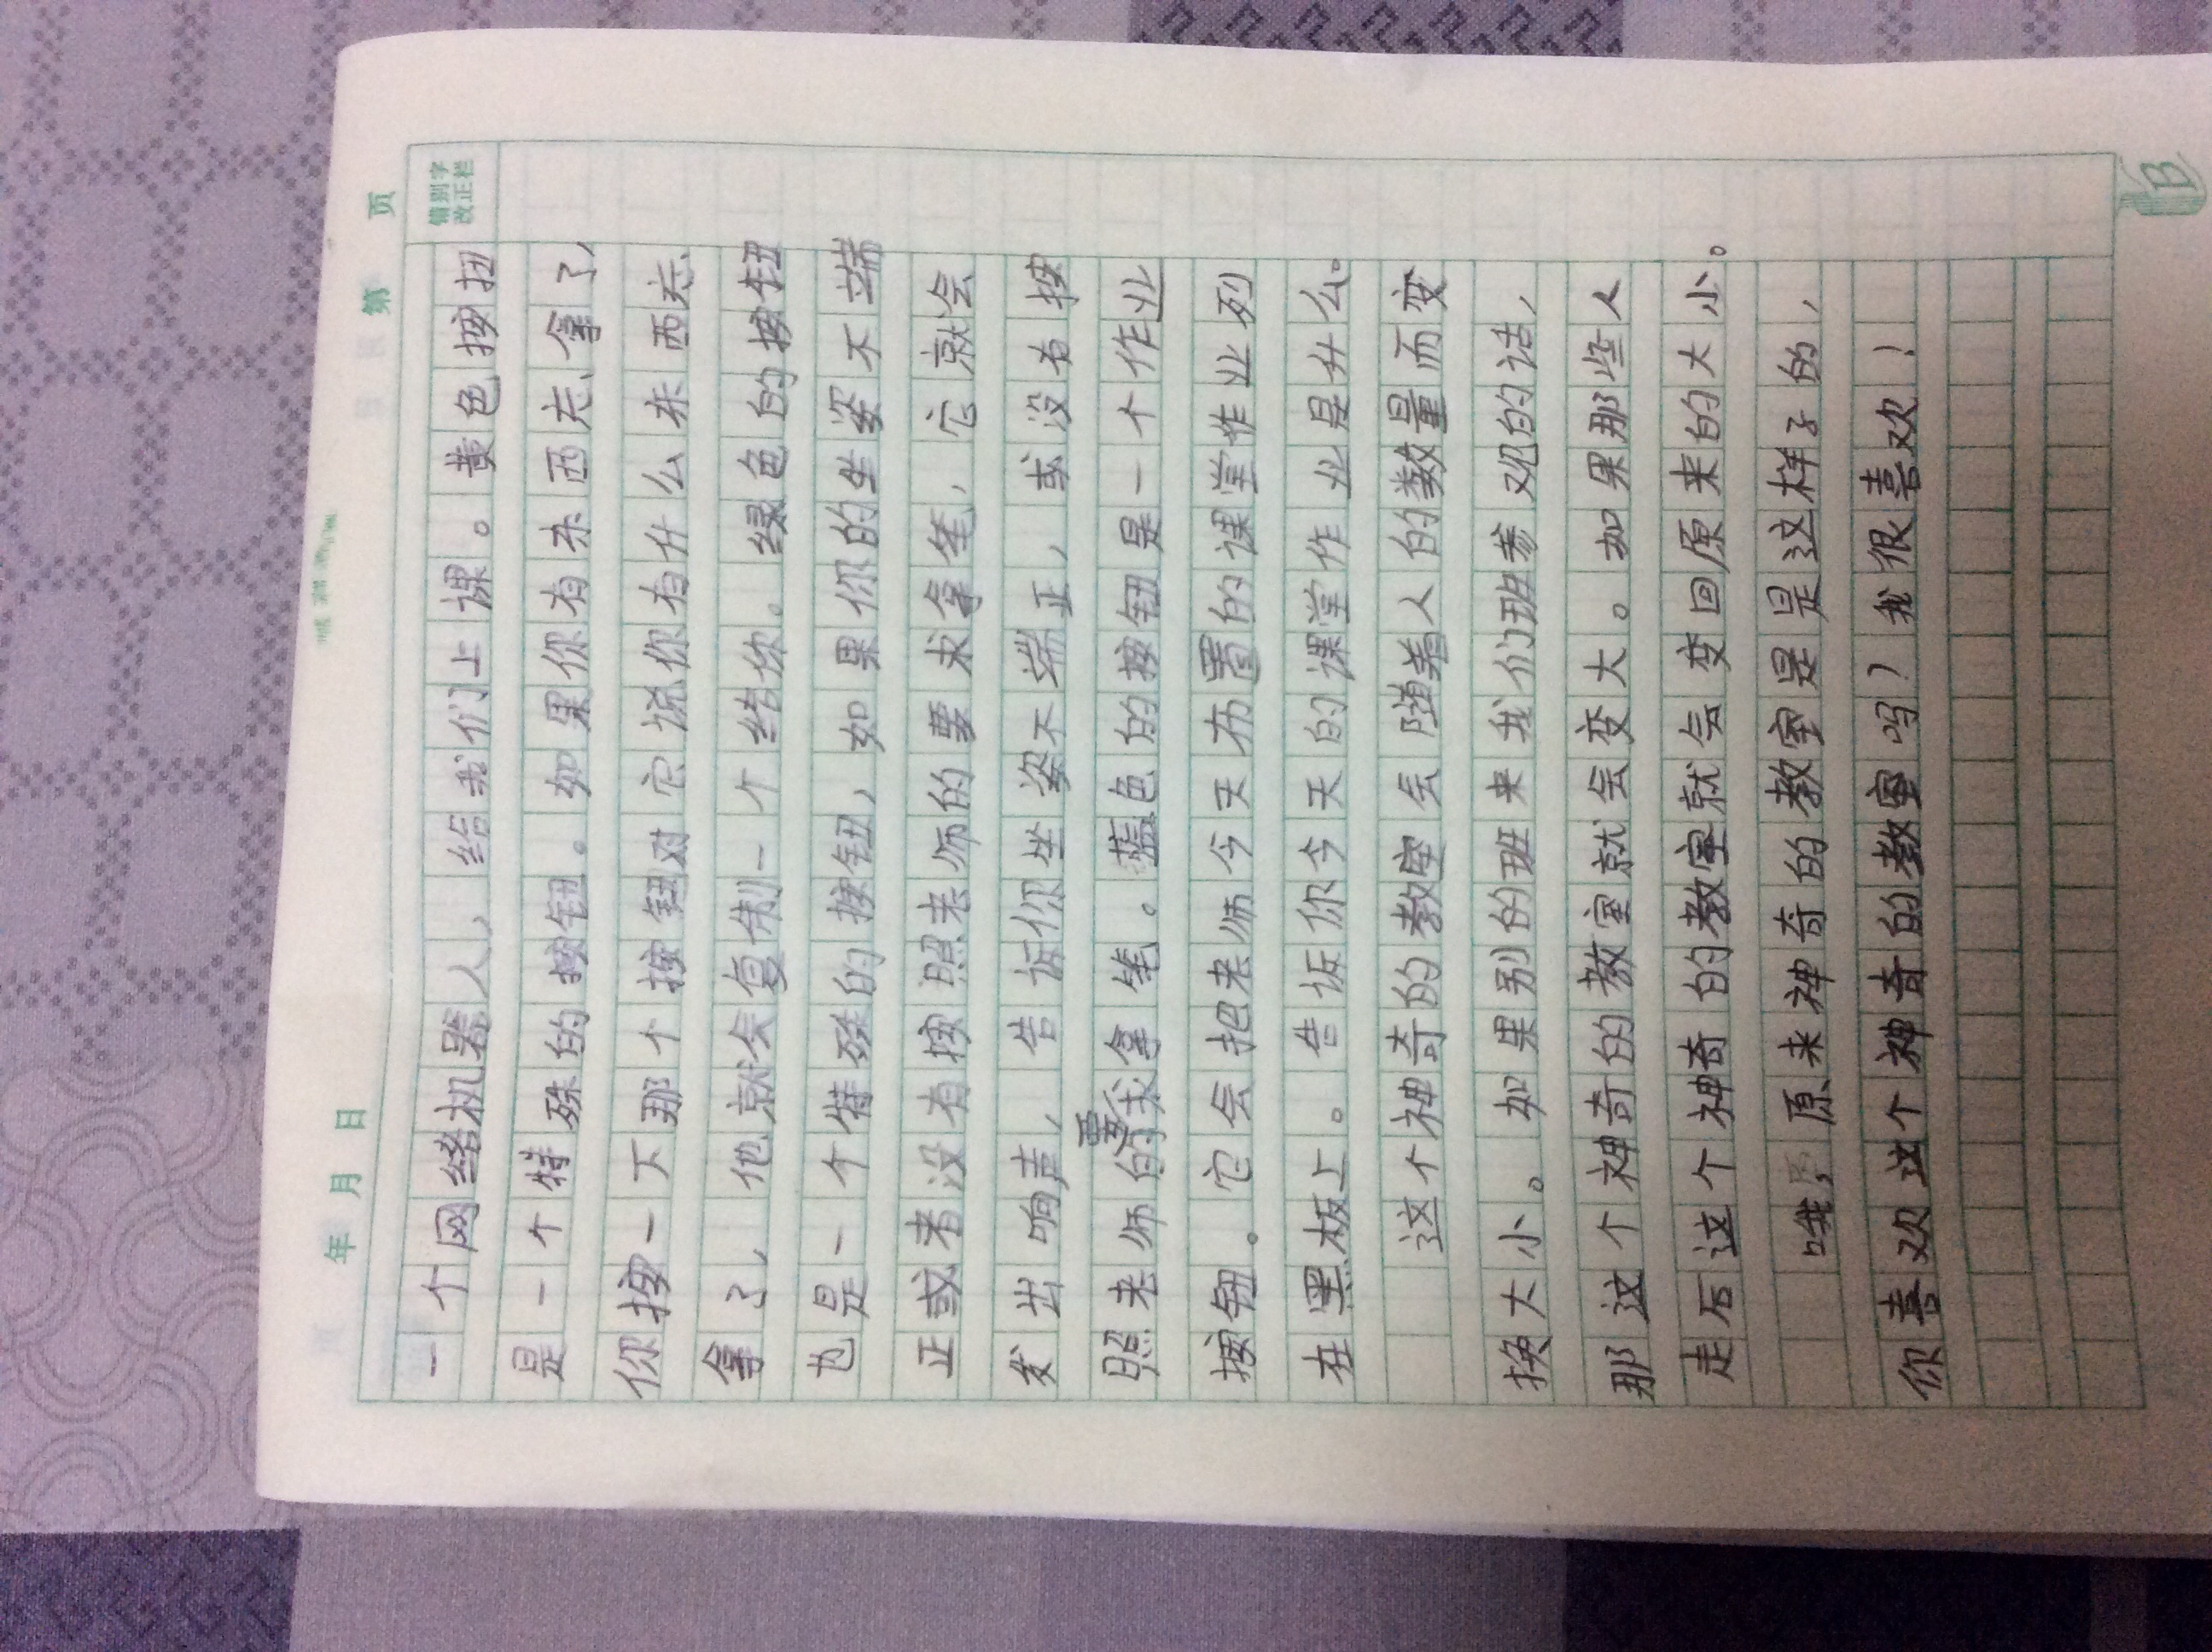 年 月 日
第 页
错别字
改正栏
一个网络机器人,给我们上课。黄色按扭
是一个特殊的按钮。如果你有东西忘拿了,
你按一下那个按钮对它说你有什么东西忘
拿了,他就会复制一个给你。绿色的按钮
也是一个特殊的按钮,如果你的坐姿不端
正或者没有按照老师的要求拿笔,它就会
发出响声,告诉你坐姿不端正,或没有按
照老师的要求拿笔。蓝色的按钮是一个作业
按钮。它会把老师今天布置的课堂作业列
在黑板上。告诉你今天的课堂作业是什么。
这个神奇的教室会随着人的数量而变
换大小。如果别的班来我们班参观的话,
那这个神奇的教室就会变大。如果那些人
走后这个神奇的教室就会变回原来的大小。
哦,原来神奇的教室是是这样子的,
你喜欢这个神奇的教室吗?我很喜欢!
B